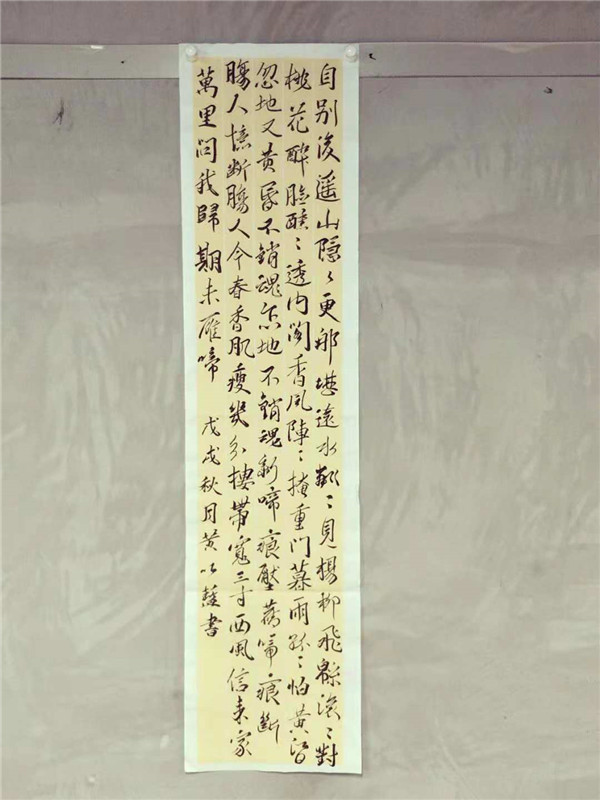 自别後遥山隐〻更那堪遠水粼〻見楊柳飛綿滚〻對
桃花醉臉醺〻透内閣香风陣〻掩重门暮雨紛〻怕黄昏
忽地又黄昏不銷魂怎地不銷魂新啼痕壓舊啼痕断
腸人憶断腸人今春香肌瘦幾分摟帶寬三寸西風信来家
萬里问我歸期未雁啼
戊戌秋月黄以書